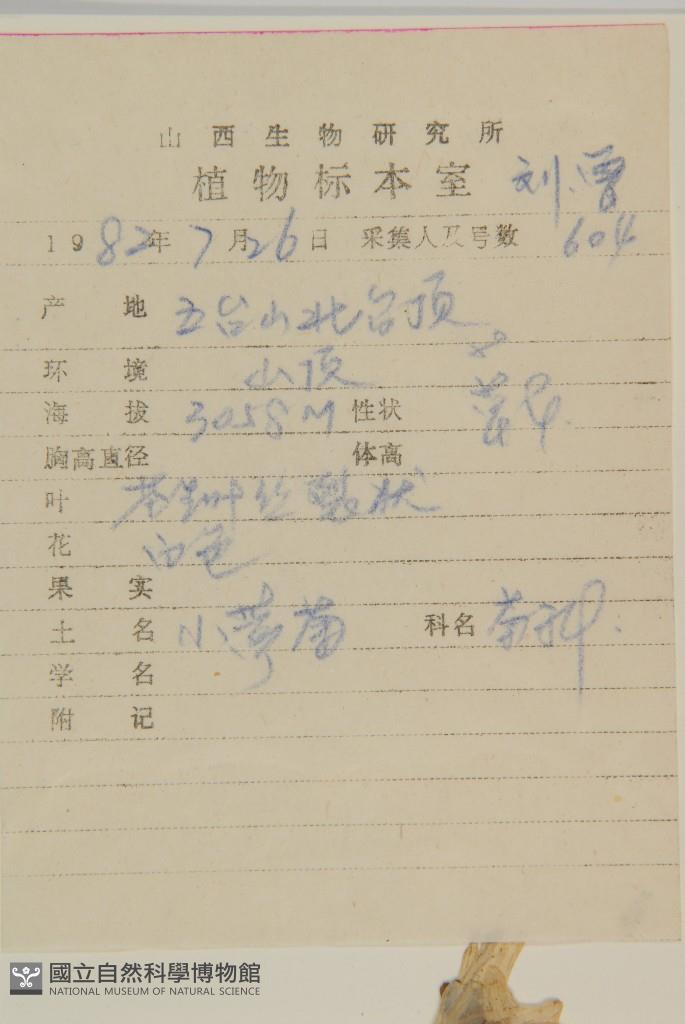 山西生物研究所
植物标本室 刘、曾
1982年7月26日 采集人及号数 604
产地 五台山北台顶
环境 山顶
海拔 3058M 性状 草
胸高直径 体高
叶
花 白色
果实
土名 小 科名 科
学名
附记
國立自然科學博物館
NATIONAL MUSEUM OF NATURAL SCIENCE